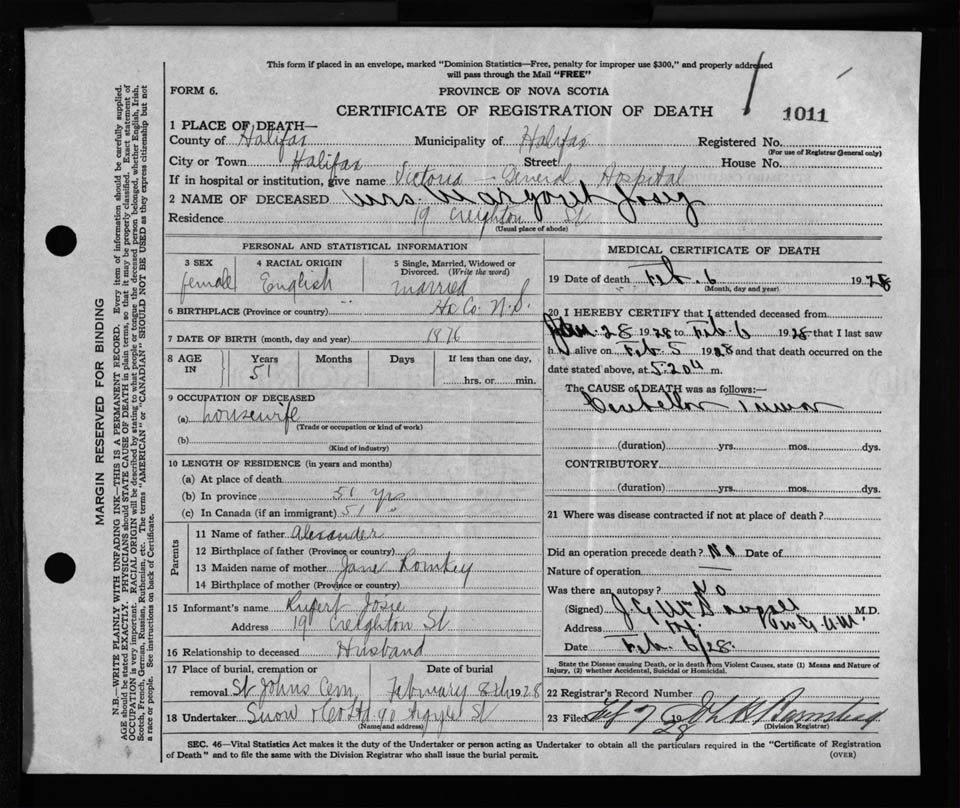 This form if placed in an envelope, marked "Dominion Statistics—Free, penalty for improper use $300," and properly addressed
will pass through the Mail "FREE"
FORM 6.
PROVINCE OF NOVA SCOTIA
CERTIFICATE OF REGISTRATION OF DEATH
1011
1 PLACE OF DEATH—
County of Halifax Municipality of Halifax Registered No.
(For use of Registrar General only)
City or Town Halifax Street House No.
If in hospital or institution, give name Victoria General Hospital
2 NAME OF DECEASED Mrs Margaret Josey
Residence 19 Creighton St
(Usual place of abode)
PERSONAL AND STATISTICAL INFORMATION
3 SEX
female
4 RACIAL ORIGIN
English
5 Single, Married, Widowed or
Divorced. (Write the word)
married
6 BIRTHPLACE (Province or country) Hx Co. N.S.
7 DATE OF BIRTH (month, day and year) 1876
8 AGE IN
Years Months Days If less than one day,
51 hrs. or min.
9 OCCUPATION OF DECEASED
(a) housewife
(Trade or occupation or kind of work)
(b)
(Kind of industry)
10 LENGTH OF RESIDENCE (in years and months)
(a) At place of death
(b) In province 51 yrs
(c) In Canada (if an immigrant) 51 "
Parents
11 Name of father Alexander
12 Birthplace of father (Province or country)
13 Maiden name of mother Jane Romkey
14 Birthplace of mother (Province or country)
15 Informant's name Rupert Josie
Address 19 Creighton St
16 Relationship to deceased Husband
17 Place of burial, cremation or Date of burial
removal St Johns Cem February 8th 1928
18 Undertaker Snow & Co Ltd 90 Argyle St
(Name and address)
MEDICAL CERTIFICATE OF DEATH
19 Date of death Feb. 6 1928
(Month, day and year)
20 I HEREBY CERTIFY that I attended deceased from
Jan 28 1928 to Feb 6 1928 that I last saw
h alive on Feb 5 1928 and that death occurred on the
date stated above, at 5.20 m.
The CAUSE of DEATH was as follows:—
Tumor
(duration) yrs. mos. dys.
CONTRIBUTORY
(duration) yrs. mos. dys.
21 Where was disease contracted if not at place of death?
Did an operation precede death? No Date of
Nature of operation —
Was there an autopsy? No
(Signed) M.D.
Address
Date Feb 6/28
State the Disease causing Death, or in death from Violent Causes, state (1) Means and Nature of
Injury, (2) whether Accidental, Suicidal or Homicidal.
22 Registrar's Record Number
23 Filed Feb 7 1928
(Division Registrar)
SEC. 46—Vital Statistics Act makes it the duty of the Undertaker or person acting as Undertaker to obtain all the particulars required in the "Certificate of Registration
of Death" and to file the same with the Division Registrar who shall issue the burial permit.
(OVER)
MARGIN RESERVED FOR BINDING
N.B.—WRITE PLAINLY WITH UNFADING INK—THIS IS A PERMANENT RECORD. Every item of information should be carefully supplied.
AGE should be stated EXACTLY. PHYSICIANS should STATE CAUSE OF DEATH in plain terms, so that it may be properly classified. Exact statement of
OCCUPATION is very important. RACIAL ORIGIN will be described by stating to what people or tongue the deceased person belonged, whether English, Irish,
Scotch, French, German, Russian, Ruthenian, etc. The terms "AMERICAN" or "CANADIAN" SHOULD NOT BE USED as they express citizenship but not
a race or people. See instructions on back of Certificate.